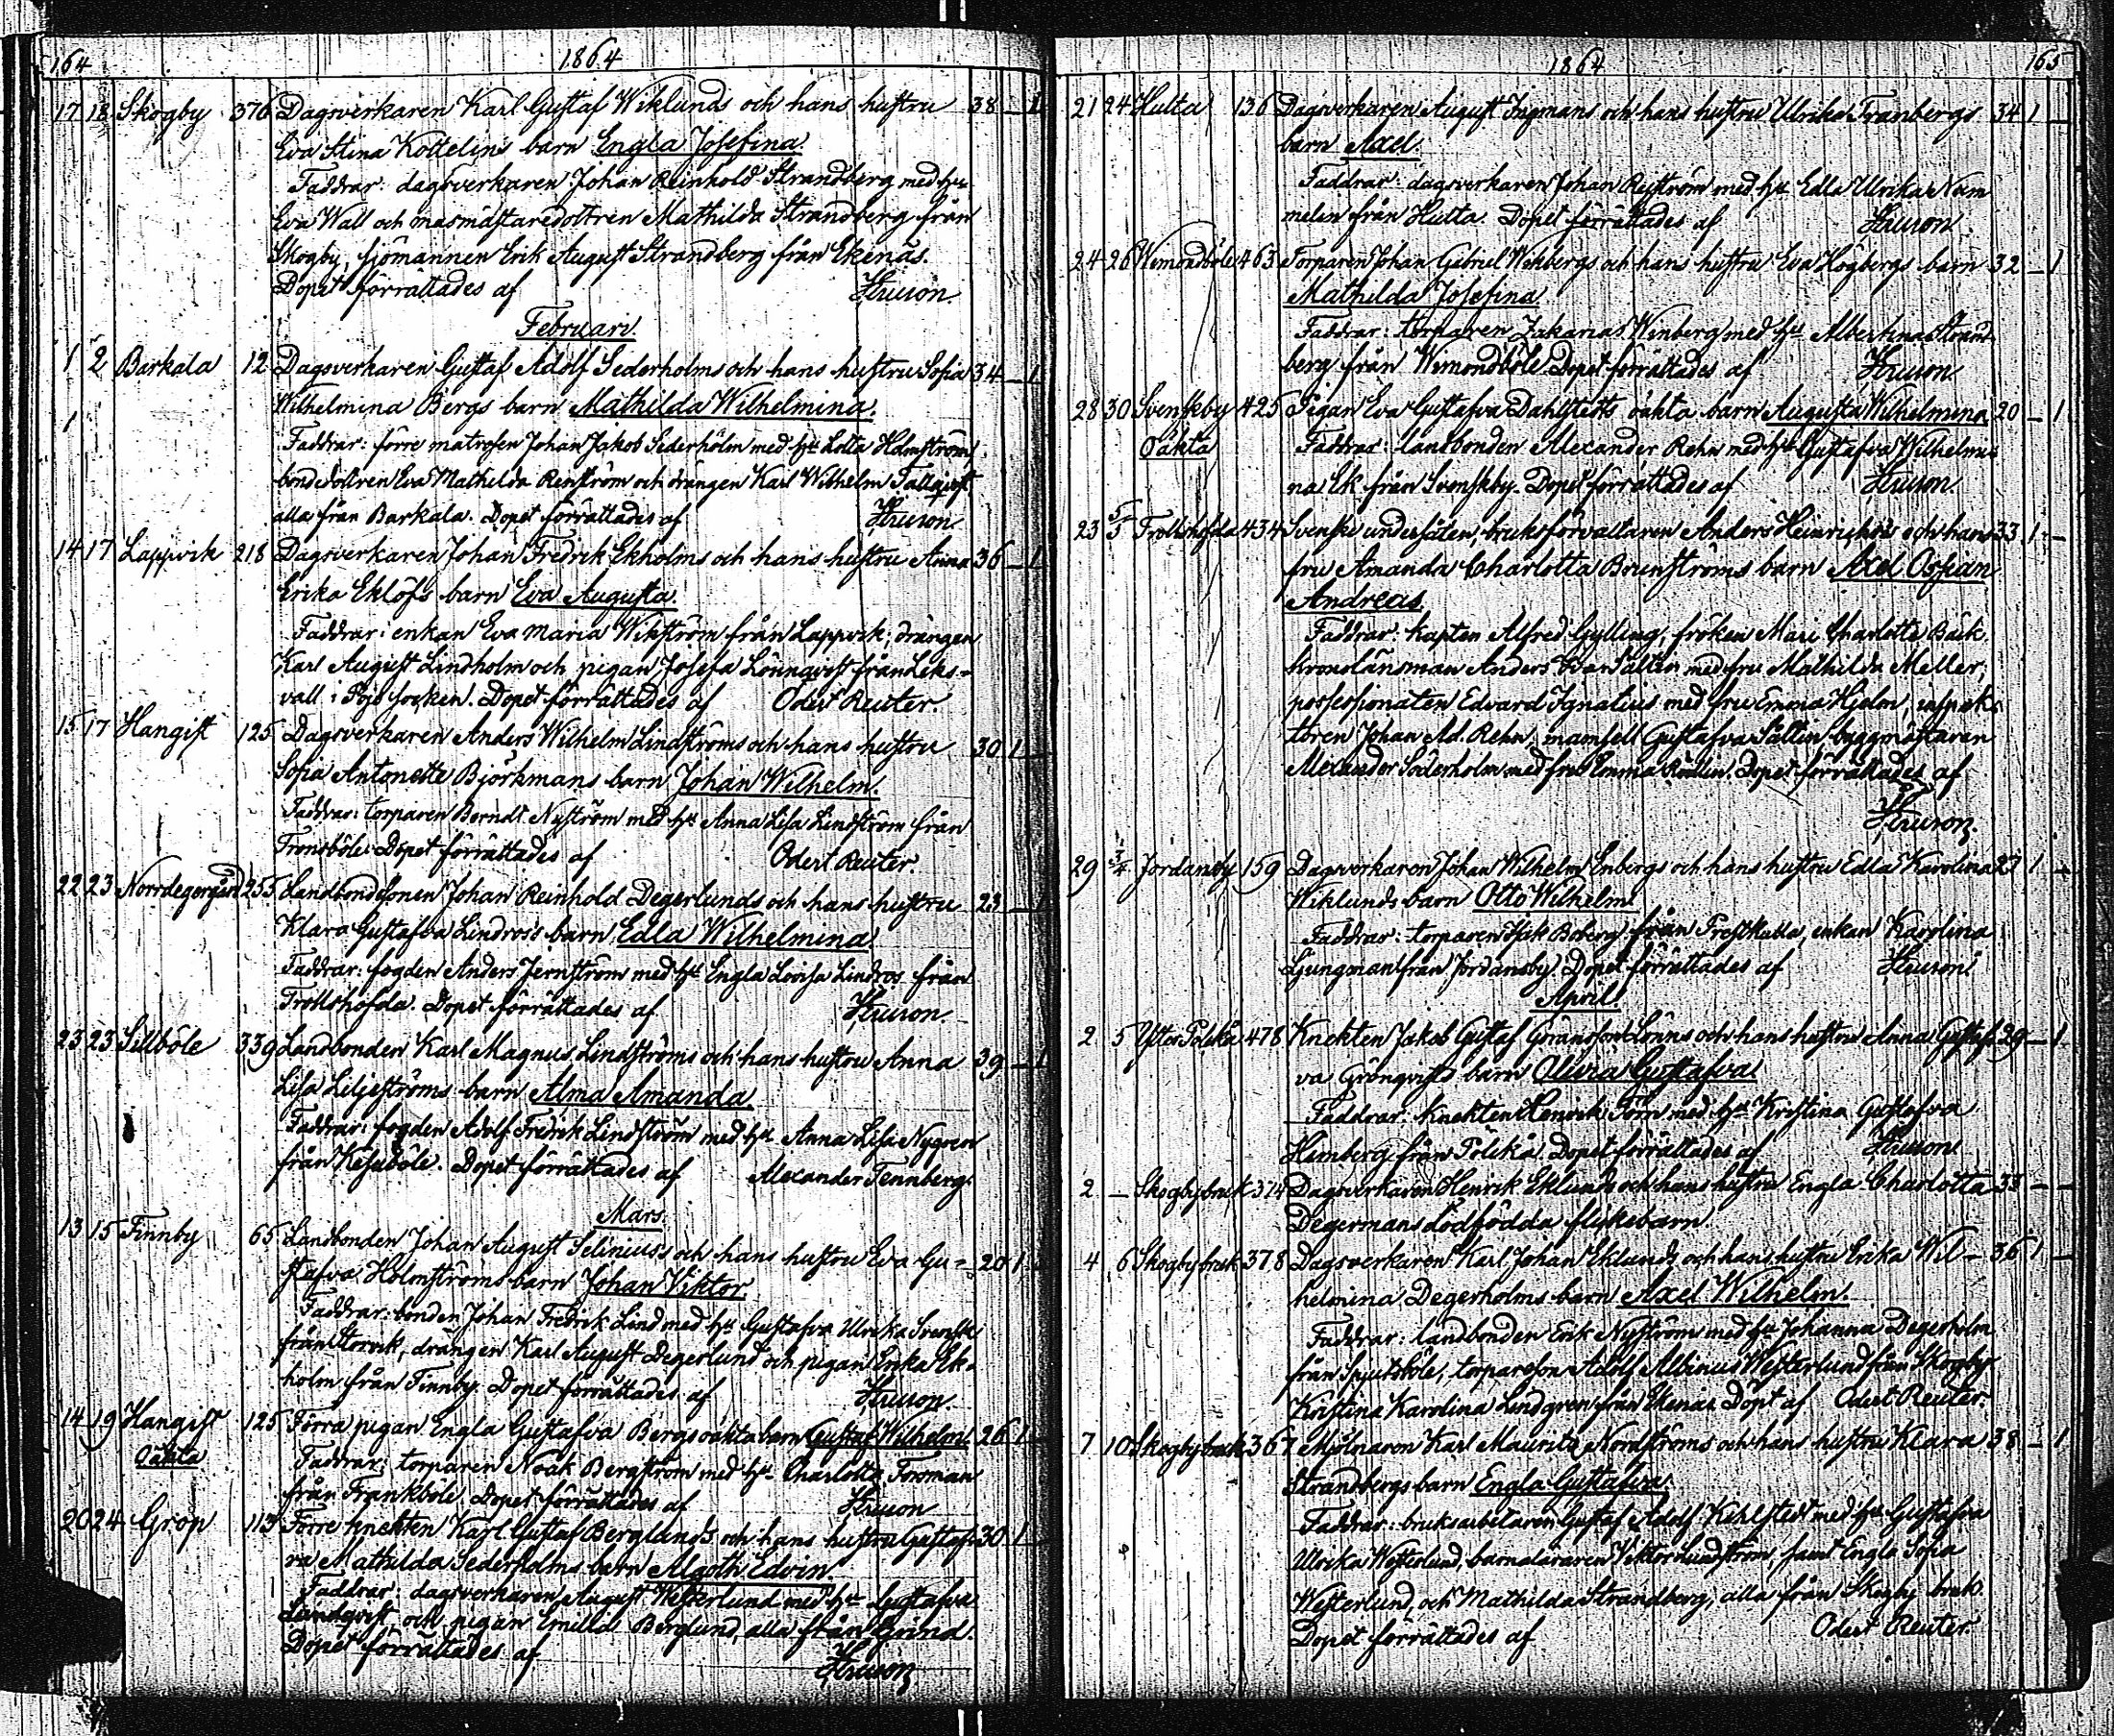 164 1864
17 18 Skogby 376 Dagsverkaren Karl Gustaf Wiklunds och hans hustru 38 — 1
Eva Stina Kottelins barn Engla Josefina.
Faddrar: dagsverkaren Johan Reinhold Strandberg med h:u
Eva Wall och masmästaredottren Mathilda Strandberg från
Skogby, sjömannen Erik August Strandberg från Ekenäs.
Dopet förrättades af
Februari.
1 2 Barkala 12 Dagsverkaren Gustaf Adolf Sederholms och hans hustru Sofia 34 — 1
Wilhelmina Bergs barn Mathilda Wilhelmina.
1
Faddrar: förre matrosen Johan Jakob Sederholm med h:u Lotta Holmström,
bondedottren Eva Mathilda Renström och drängen Karl Wilhelm Tallqvist,
alla från Barkala. Dopet förrättades af
14 17 Lappvik 218 Dagsverkaren Johan Fredrik Ekholms och hans hustru Anna 36 — 1
Erika Eklöfs barn Eva Augusta.
Faddrar: enkan Eva Maria Wikström från Lappvik; drängen
Karl August Lindholm och pigan Josefa Lönnqvist från Leks-
vall i Pojo socken. Dopet förrättades af Odert Reuter.
15 17 Hangist 125 Dagsverkaren Anders Wilhelm Lindströms och hans hustru 30 1 —
Sofia Antonette Björkmans barn Johan Wilhelm.
Faddrar: torparen Berndt Nyström med h:u Anna Lisa Lindström från
Tronsböle. Dopet förrättades af Odert Reuter.
22 23 Norrdegergård 255 Landbondesonen Johan Reinhold Degerlunds och hans hustru 23 — 1
Klara Gustafva Lindros's barn Edla Wilhelmina.
Faddrar: fogden Anders Jernström med h:u Engla Lovisa Lindros från
Trollshöfda. Dopet förrättades af
23 23 Sillböle 339 Landbonden Karl Magnus Lindströms och hans hustru Anna 39 — 1
Lisa Liljeströms barn Alma Amanda.
Faddrar: fogden Adolf Fredrik Lindström med h:u Anna Lisa Nygren
från Kesuböle. Dopet förrättades af Alexander Tennberg.
Mars.
13 15 Finnby 65 Landbonden Johan August Seliniuss och hans hustru Eva Gu- 20 1 —
stafva Holmströms barn Johan Viktor.
Faddrar: bonden Johan Fredrik Lind med h:u Gustafva Ulrika Svensk
från Storvik, drängen Karl August Degerlund och pigan Erika Ek-
holm från Finnby. Dopet förrättades af
14 19 Hangist 125 Förra pigan Engla Gustafva Bergs oäkta barn Gustaf Wilhelm. 26 1 —
Oäkta
Faddrar: torparen Noak Bergström med h:u Charlotta Forsman
från Frankböle. Dopet förrättades af
20 24 Grop 113 Förre knekten Karl Gustaf Berglunds och hans hustru Gustaf- 30 1 —
va Mathilda Sederholms barn Algoth Edvin.
Faddrar: dagsverkaren August Westerlund med h:u Gustafva
Lundqvist och pigan Emilia Berglund, alla från Grind.
Dopet förrättades af
1864 165
21 24 Hulta 136 Dagsverkaren August Ingmans och hans hustru Ulrika Franbergs 34 1 —
barn Axel.
Faddrar: dagsverkaren Johan Rejström med h:u Edla Ulrika Num
melin från Hulta. Dopet förrättades af
24 26 Wimondböle 463 Torparen Johan Gabriel Wikbergs och hans hustru Eva Högbergs barn 32 — 1
Mathilda Josefina
Faddrar: torparen Zakarias Winberg med h:u Albertina Strand-
berg från Wimondböle. Dopet förrättades af
28 30 Svenskby 425 Pigan Eva Gustafva Dahlstedts oäkta barn Augusta Wilhelmina 20 — 1
Oäkta
Faddrar: landbonden Alexander Rehn med h:u Gustafva Wilhelmi-
na Ek från Svenskby. Dopet förrättades af
23 5/5 Trollshöfda 434 Svenske undersåten, bruksförvaltaren Anders och hans 33 1 —
fru Amanda Charlotta Brunströms barn Axel Ossian
Andreas
Faddrar: kapten Alfred Gylling, fröken Mari Charlotte Bäck,
kronolänsman Anders med fru Mathilda Meller,
possessionaten Edvard Ignatius med fru Emma Hjelm, inspek-
toren Johan Ad. Rehn, mamsell Gustafva Sallin, byggmästaren
Alexander Söderholm med fru Emma. Dopet förrättades af
29 3/4 Jordansby 159 Dagsverkaren Johan Wilhelm Enbergs och hans hustru Edla Karolina 27 1 —
Wiklunds barn Otto Wilhelm.
Faddrar: torparen Isak Broberg från Prestkulla, enkan Karolina
Ljungman från Jordansby. Dopet förrättades af
April
2 5 478 Knekten Jakob Gustaf Göransson Lönns och hans hustru Anna Gustaf- 29 — 1
va Grönqvists barn Olivia Gustafva
Faddrar: knekten Henrik Törn med h:u Kristina Gustafva
Himberg från Pölskå. Dopet förrättades af
2 — Skogbybruk 374 Dagsverkaren Henrik Eklunds och hans hustru Engla Charlotta 33 — —
Degermans dödfödda flickebarn.
4 6 Skogbybruk 378 Dagsverkaren Karl Johan Eklunds och hans hustru Erika Wil- 36 1 —
helmina Degerholms barn Axel Wilhelm.
Faddrar: landbonden Erik Nyström med h:u Johanna Degerholm
från Spjutsböle, torparesonen Adolf Albinus Westerlund från Skogby
Kristina Karolina Lindgren från Ekenäs. Döpt af Odert Reuter.
7 10 Skogbybruk 367 Mjölnaren Karl Maurits Nordströms och hans hustru Klara 38 — 1
Strandbergs barn Engla Gustafva.
Faddrar: bruksarbetaren Gustaf Adolf Kihlstedt med h:u Gustafva
Ulrika Westerlund, barnaläraren Viktor Lundström, samt Engla Sofia
Westerlund och Mathilda Strandberg, alla från Skogby bruk.
Dopet förrättades af Odert Reuter.